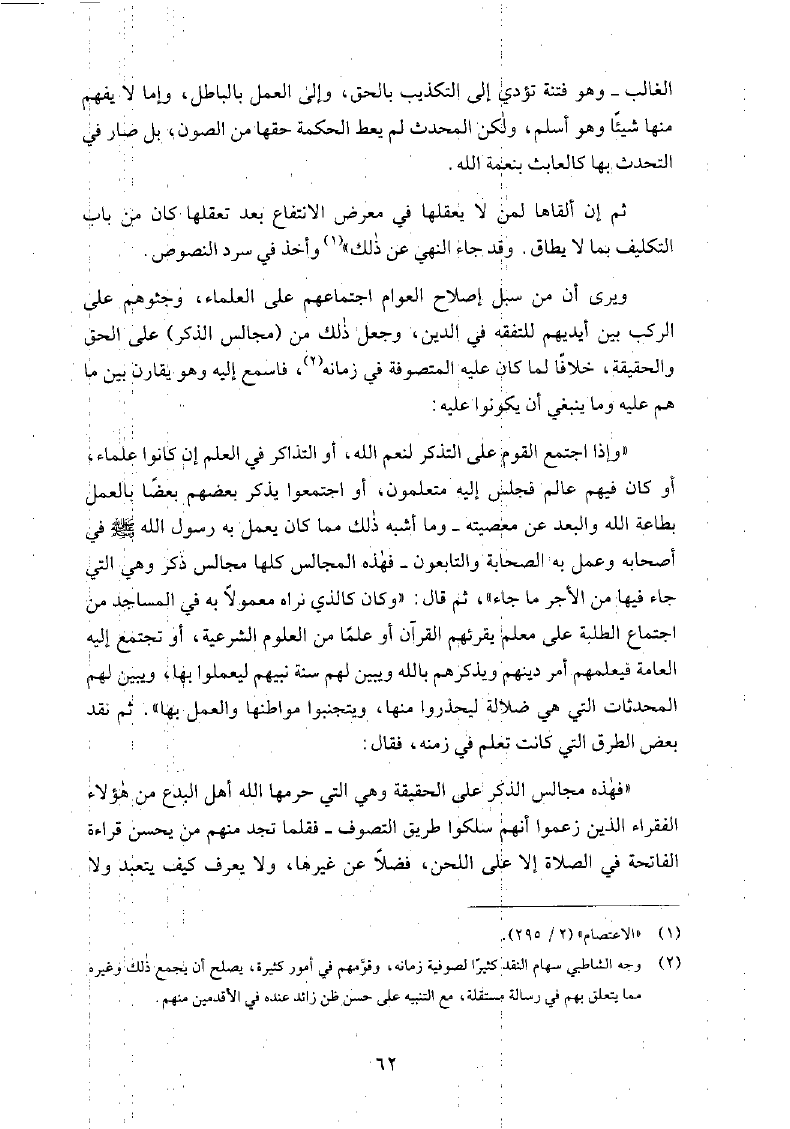 الغالب ـ وهو فتنة تؤدي إلى التكذيب بالحق، وإلى العمل بالباطل، وإما لا يفهم
منها شيئًا وهو أسلم، ولٰكن المحدث لم يعط الحكمة حقها من الصون، بل صار في
التحدث بها كالعابث بنعمة الله.
ثم إن ألقاها لمن لا يعقلها في معرض الانتفاع بعد تعقلها كان من باب
التكليف بما لا يطاق. وقد جاء النهي عن ذٰلك»(١) وأخذ في سرد النصوص.
ويرى أن من سبل إصلاح العوام اجتماعهم على العلماء، وجثوهم على
الركب بين أيديهم للتفقه في الدين، وجعل ذٰلك من (مجالس الذكر) على الحق
والحقيقة، خلافًا لما كان عليه المتصوفة في زمانه(٢)، فاسمع إليه وهو يقارن بين ما
هم عليه وما ينبغي أن يكونوا عليه:
«وإذا اجتمع القوم على التذكر لنعم الله، أو التذاكر في العلم إن كانوا علماء،
أو كان فيهم عالم فجلس إليه متعلمون، أو اجتمعوا يذكر بعضهم بعضًا بالعمل
بطاعة الله والبعد عن معصيته ـ وما أشبه ذٰلك مما كان يعمل به رسول الله ﷺ في
أصحابه وعمل به الصحابة والتابعون ـ فهٰذه المجالس كلها مجالس ذكر وهي التي
جاء فيها من الأجر ما جاء»، ثم قال: «وكان كالذي نراه معمولاً به في المساجد من
اجتماع الطلبة على معلم يقرئهم القرآن أو علمًا من العلوم الشرعية، أو تجتمع إليه
العامة فيعلمهم أمر دينهم ويذكرهم بالله ويبين لهم سنة نبيهم ليعملوا بها، ويبين لهم
المحدثات التي هي ضلالة ليحذروا منها، ويتجنبوا مواطنها والعمل بها». ثم نقد
بعض الطرق التي كانت تعلم في زمنه، فقال:
«فهٰذه مجالس الذكر على الحقيقة وهي التي حرمها الله أهل البدع من هٰؤلاء
الفقراء الذين زعموا أنهم سلكوا طريق التصوف ـ فقلما تجد منهم من يحسن قراءة
الفاتحة في الصلاة إلا على اللحن، فضلاً عن غيرها، ولا يعرف كيف يتعبد ولا
(١) «الاعتصام» (٢ / ٢٩٥).
(٢) وجه الشاطبي سهام النقد كثيرًا لصوفية زمانه، وقوّمهم في أمور كثيرة، يصلح أن يجمع ذٰلك وغيره
مما يتعلق بهم في رسالة مستقلة، مع التنبيه على حسن ظن زائد عنده في الأقدمين منهم.
٦٢